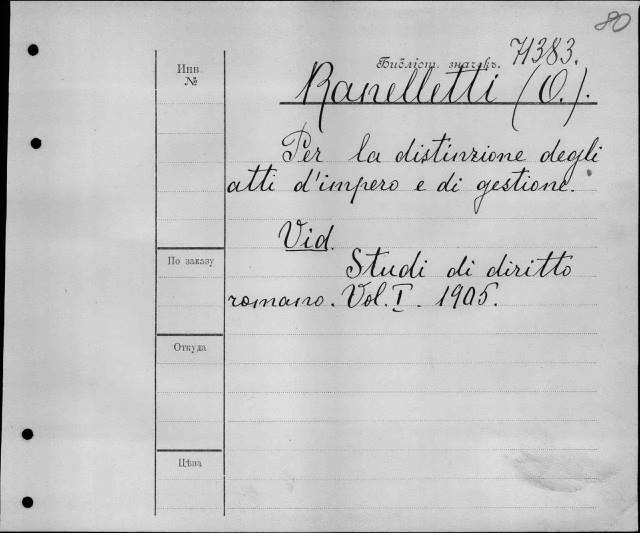 80
Инв.
№
Библіот. значекъ. 71383.
Ranelletti (O.).
Per la distinzione degli
atti d'impero e di gestione.
Vid.
По заказу
Studi di diritto
romano. Vol. I. 1905.
Откуда
Цѣна